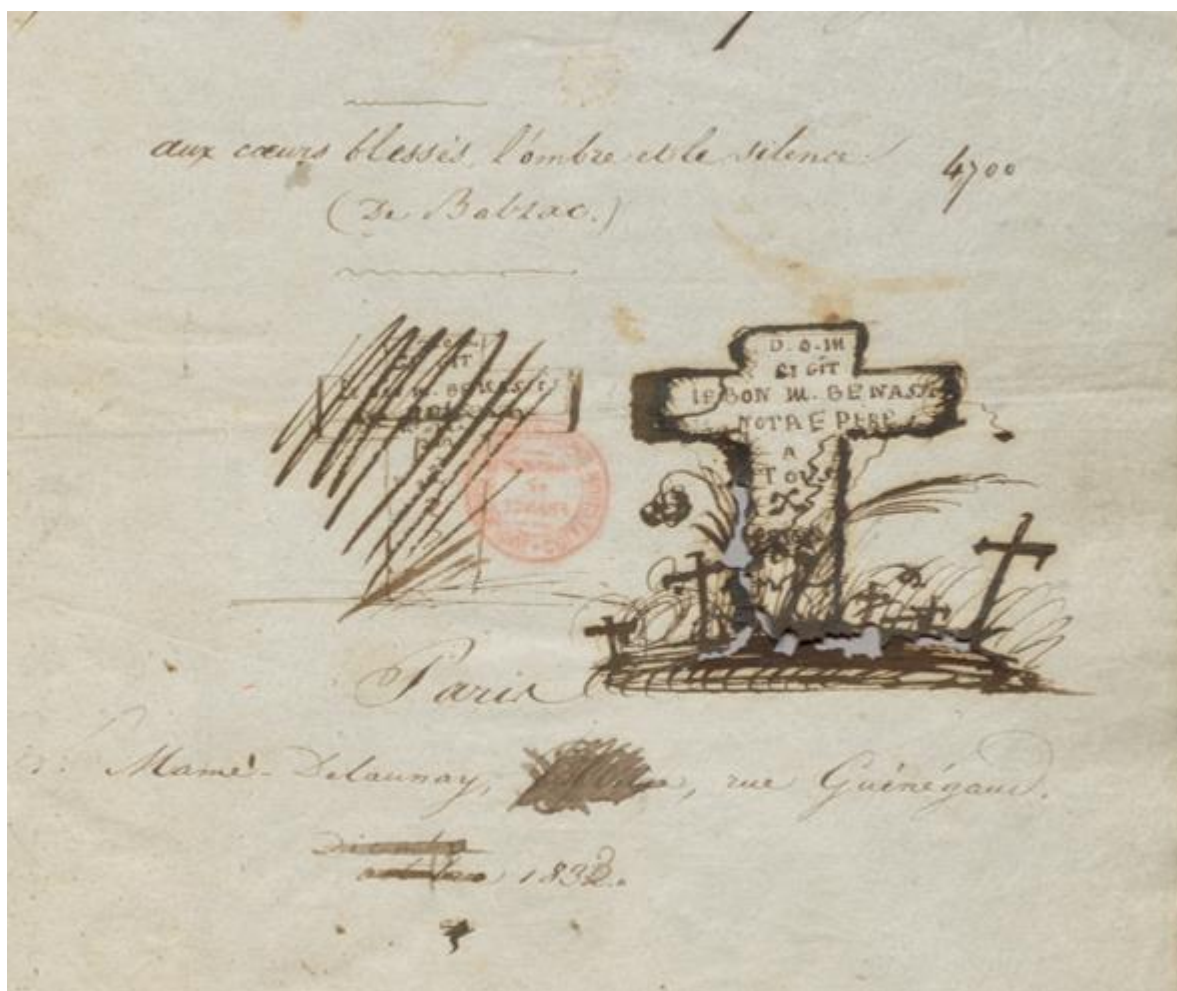 aux cœurs blessés, l'ombre et le silence.
4700
(De Balzac.)
D. O. M
CI GÎT
LE BON M. BENASSIS
NOTRE PÈRE
A
TOUS
Paris
Mame-Delaunay, rue Guénégaud.
1832.